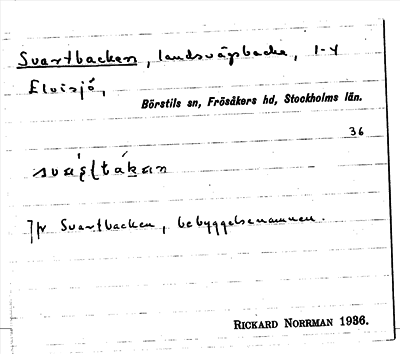 Svartbacken, landsvägsbacke, 1-4
Elvisjö,
Börstils sn, Frösåkers hd, Stockholms län.
36
Jfr Svartbacken, bebyggelsenamnen.
RICKARD NORRMAN 1936.